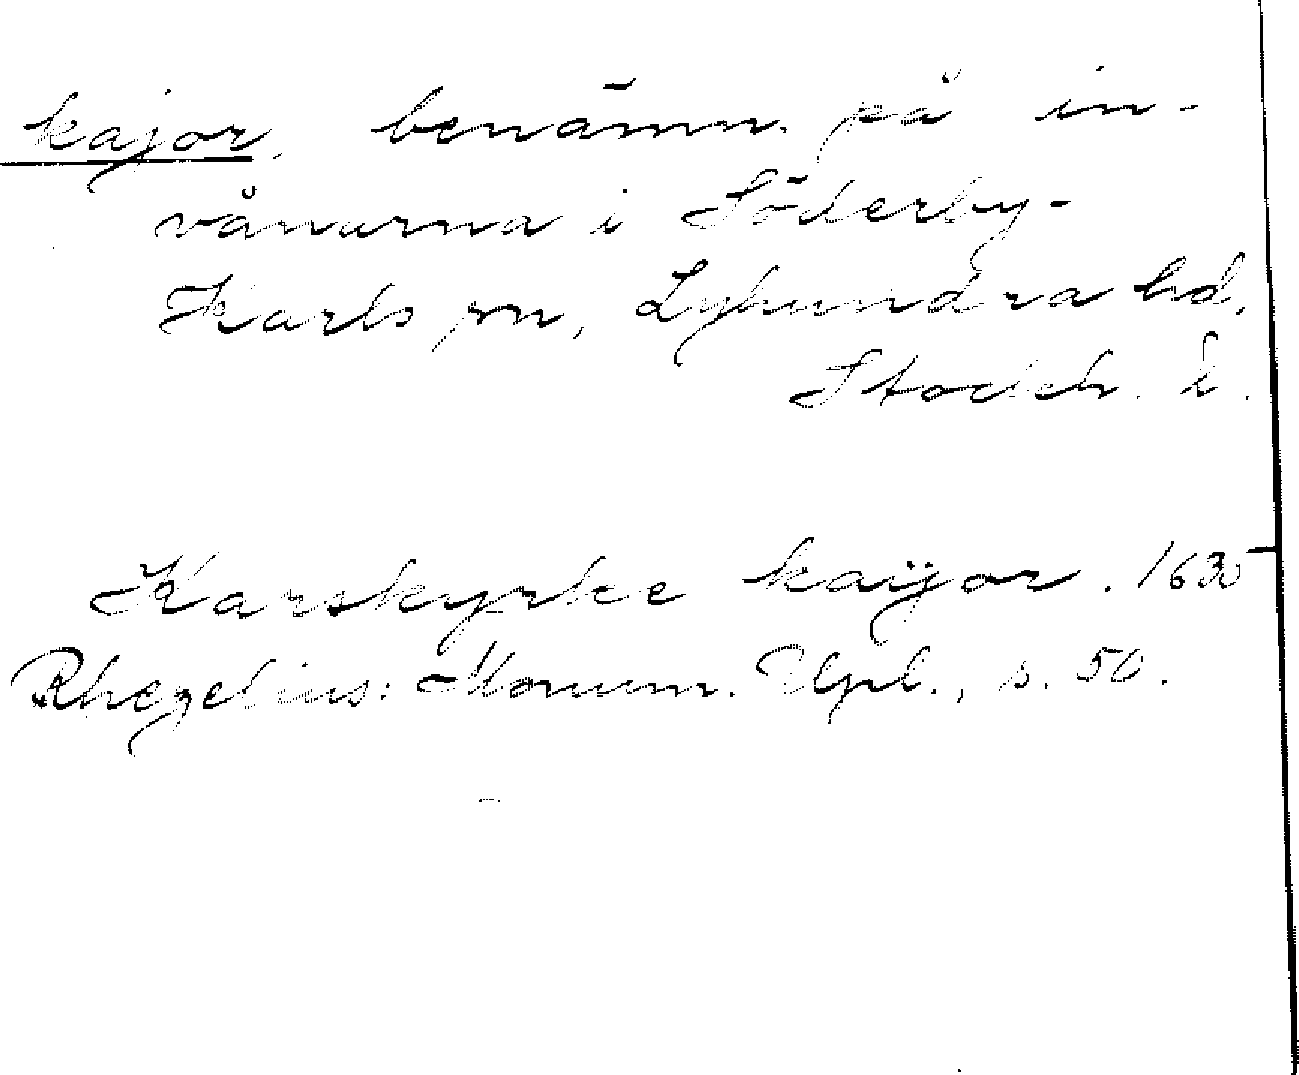 kajor, benämn. på in-
vånarna i Söderby-
Karls sn, Lyhundra hd,
Stockh. l.
Karskyrke kaÿor. 1630
Rhezelius: Monum. Upl., s. 50.